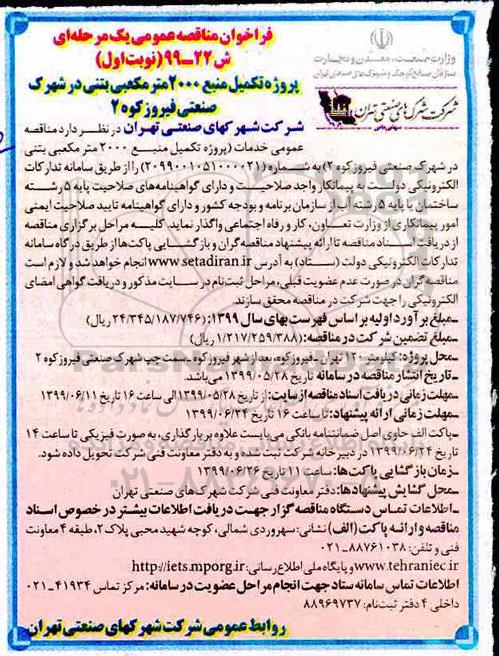 فراخوان مناقصه عمومی یک مرحله‌ای
ش ۲۲ـ۹۹ (نوبت اول)
پروژه تکمیل منبع ۲۰۰۰ متر مکعبی بتنی در شهرک
صنعتی فیروز کوه ۲
وزارت صنعت، معدن و تجارت
سازمان صنایع کوچک و شهرک‌های صنعتی ایران
شرکت شهرک‌های صنعتی تهران
شرکت شهر کهای صنعتی تهران در نظر دارد مناقصه
عمومی خدمات (پروژه تکمیل منبع ۲۰۰۰ متر مکعبی بتنی
در شهرک صنعتی فیروز کوه ۲) به شماره (۲۰۹۹۰۰۱۰۵۱۰۰۰۰۲۱) را از طریق سامانه تدارکات
الکترونیکی دولت به پیمانکار واجد صلاحیت و دارای گواهینامه‌های صلاحیت پایه ۵ رشته
ساختمان یا پایه ۵ رشته آب از سازمان برنامه و بودجه کشور و دارای گواهینامه تایید صلاحیت ایمنی
امور پیمانکاری از وزارت تعاون، کار و رفاه اجتماعی واگذار نماید. کلیه مراحل برگزاری مناقصه
از دریافت اسناد مناقصه تا ارائه پیشنهاد مناقصه گران و بازگشایی پاکت‌ها از طریق درگاه سامانه
تدارکات الکترونیکی دولت (ستاد) به آدرس www.setadiran.ir انجام خواهد شد و لازم است
مناقصه گران در صورت عدم عضویت قبلی، مراحل ثبت نام در سایت مذکور و دریافت گواهی امضای
الکترونیکی را جهت شرکت در مناقصه محقق سازند.
ـ مبلغ برآورد اولیه بر اساس فهرست بهای سال ۱۳۹۹: (۲۴/۳۴۵/۱۸۷/۷۴۶ ریال)
ـ مبلغ تضمین شرکت در مناقصه: (۱/۲۱۷/۲۵۹/۳۸۸ ریال)
ـ محل پروژه: کیلومتر ۱۲۰ تهران ـ فیروزکوه، بعد از شهر فیروز کوه ـ سمت چپ شهرک صنعتی فیروز کوه ۲
ـ تاریخ انتشار مناقصه در سامانه تاریخ ۱۳۹۹/۰۵/۲۸ می‌باشد.
ـ مهلت زمانی دریافت اسناد مناقصه از سایت: از تاریخ ۱۳۹۹/۰۵/۲۸ الی ساعت ۱۶ تاریخ ۱۳۹۹/۰۶/۱۱
ـ مهلت زمانی ارائه پیشنهاد: تا ساعت ۱۶ تاریخ ۱۳۹۹/۰۶/۲۴
ـ پاکت الف حاوی اصل ضمانتنامه بانکی می‌بایست علاوه بر بارگذاری، به صورت فیزیکی تا ساعت ۱۴
تاریخ ۱۳۹۹/۰۶/۲۴ در دبیر خانه شرکت ثبت شده و به دفتر معاونت فنی شرکت تحویل داده شود.
ـ زمان بازگشایی پاکت‌ها: ساعت ۱۱ تاریخ ۱۳۹۹/۰۶/۲۶
ـ محل گشایش پیشنهادها: دفتر معاونت فنی شرکت شهرک‌های صنعتی تهران
ـ اطلاعات تماس دستگاه مناقصه گزار جهت دریافت اطلاعات بیشتر در خصوص اسناد
مناقصه و ارائه پاکت (الف) نشانی: سهروردی شمالی، کوچه شهید محبی پلاک ۲، طبقه ۴ معاونت
فنی و تلفن: ۸۸۷۶۱۰۳۸ـ۰۲۱
www.tehraniec.ir و پایگاه ملی اطلاع رسانی: http://iets.mporg.ir
اطلاعات تماس سامانه ستاد جهت انجام مراحل عضویت در سامانه: مرکز تماس ۴۱۹۳۴ـ۰۲۱
داخلی ۴ دفتر ثبت نام: ۸۸۹۶۹۷۳۷
روابط عمومی شرکت شهر کهای صنعتی تهران